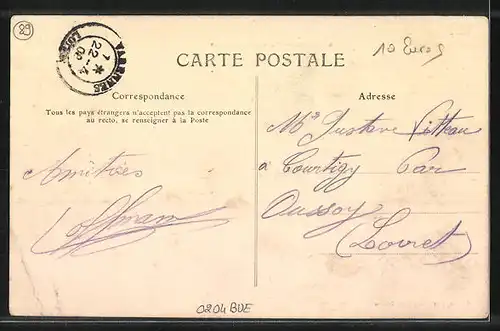 29
VARENNES
1 *
22 -4
08
LOIRET
CARTE POSTALE
10 Euros
Correspondance
Tous les pays étrangers n'acceptent pas la correspondance
au recto, se renseigner à la Poste
Adresse
Amitiés
Mr Gustave Vitteau
à Courtigy Par
Oussoy
(Loiret)
0204 BUE